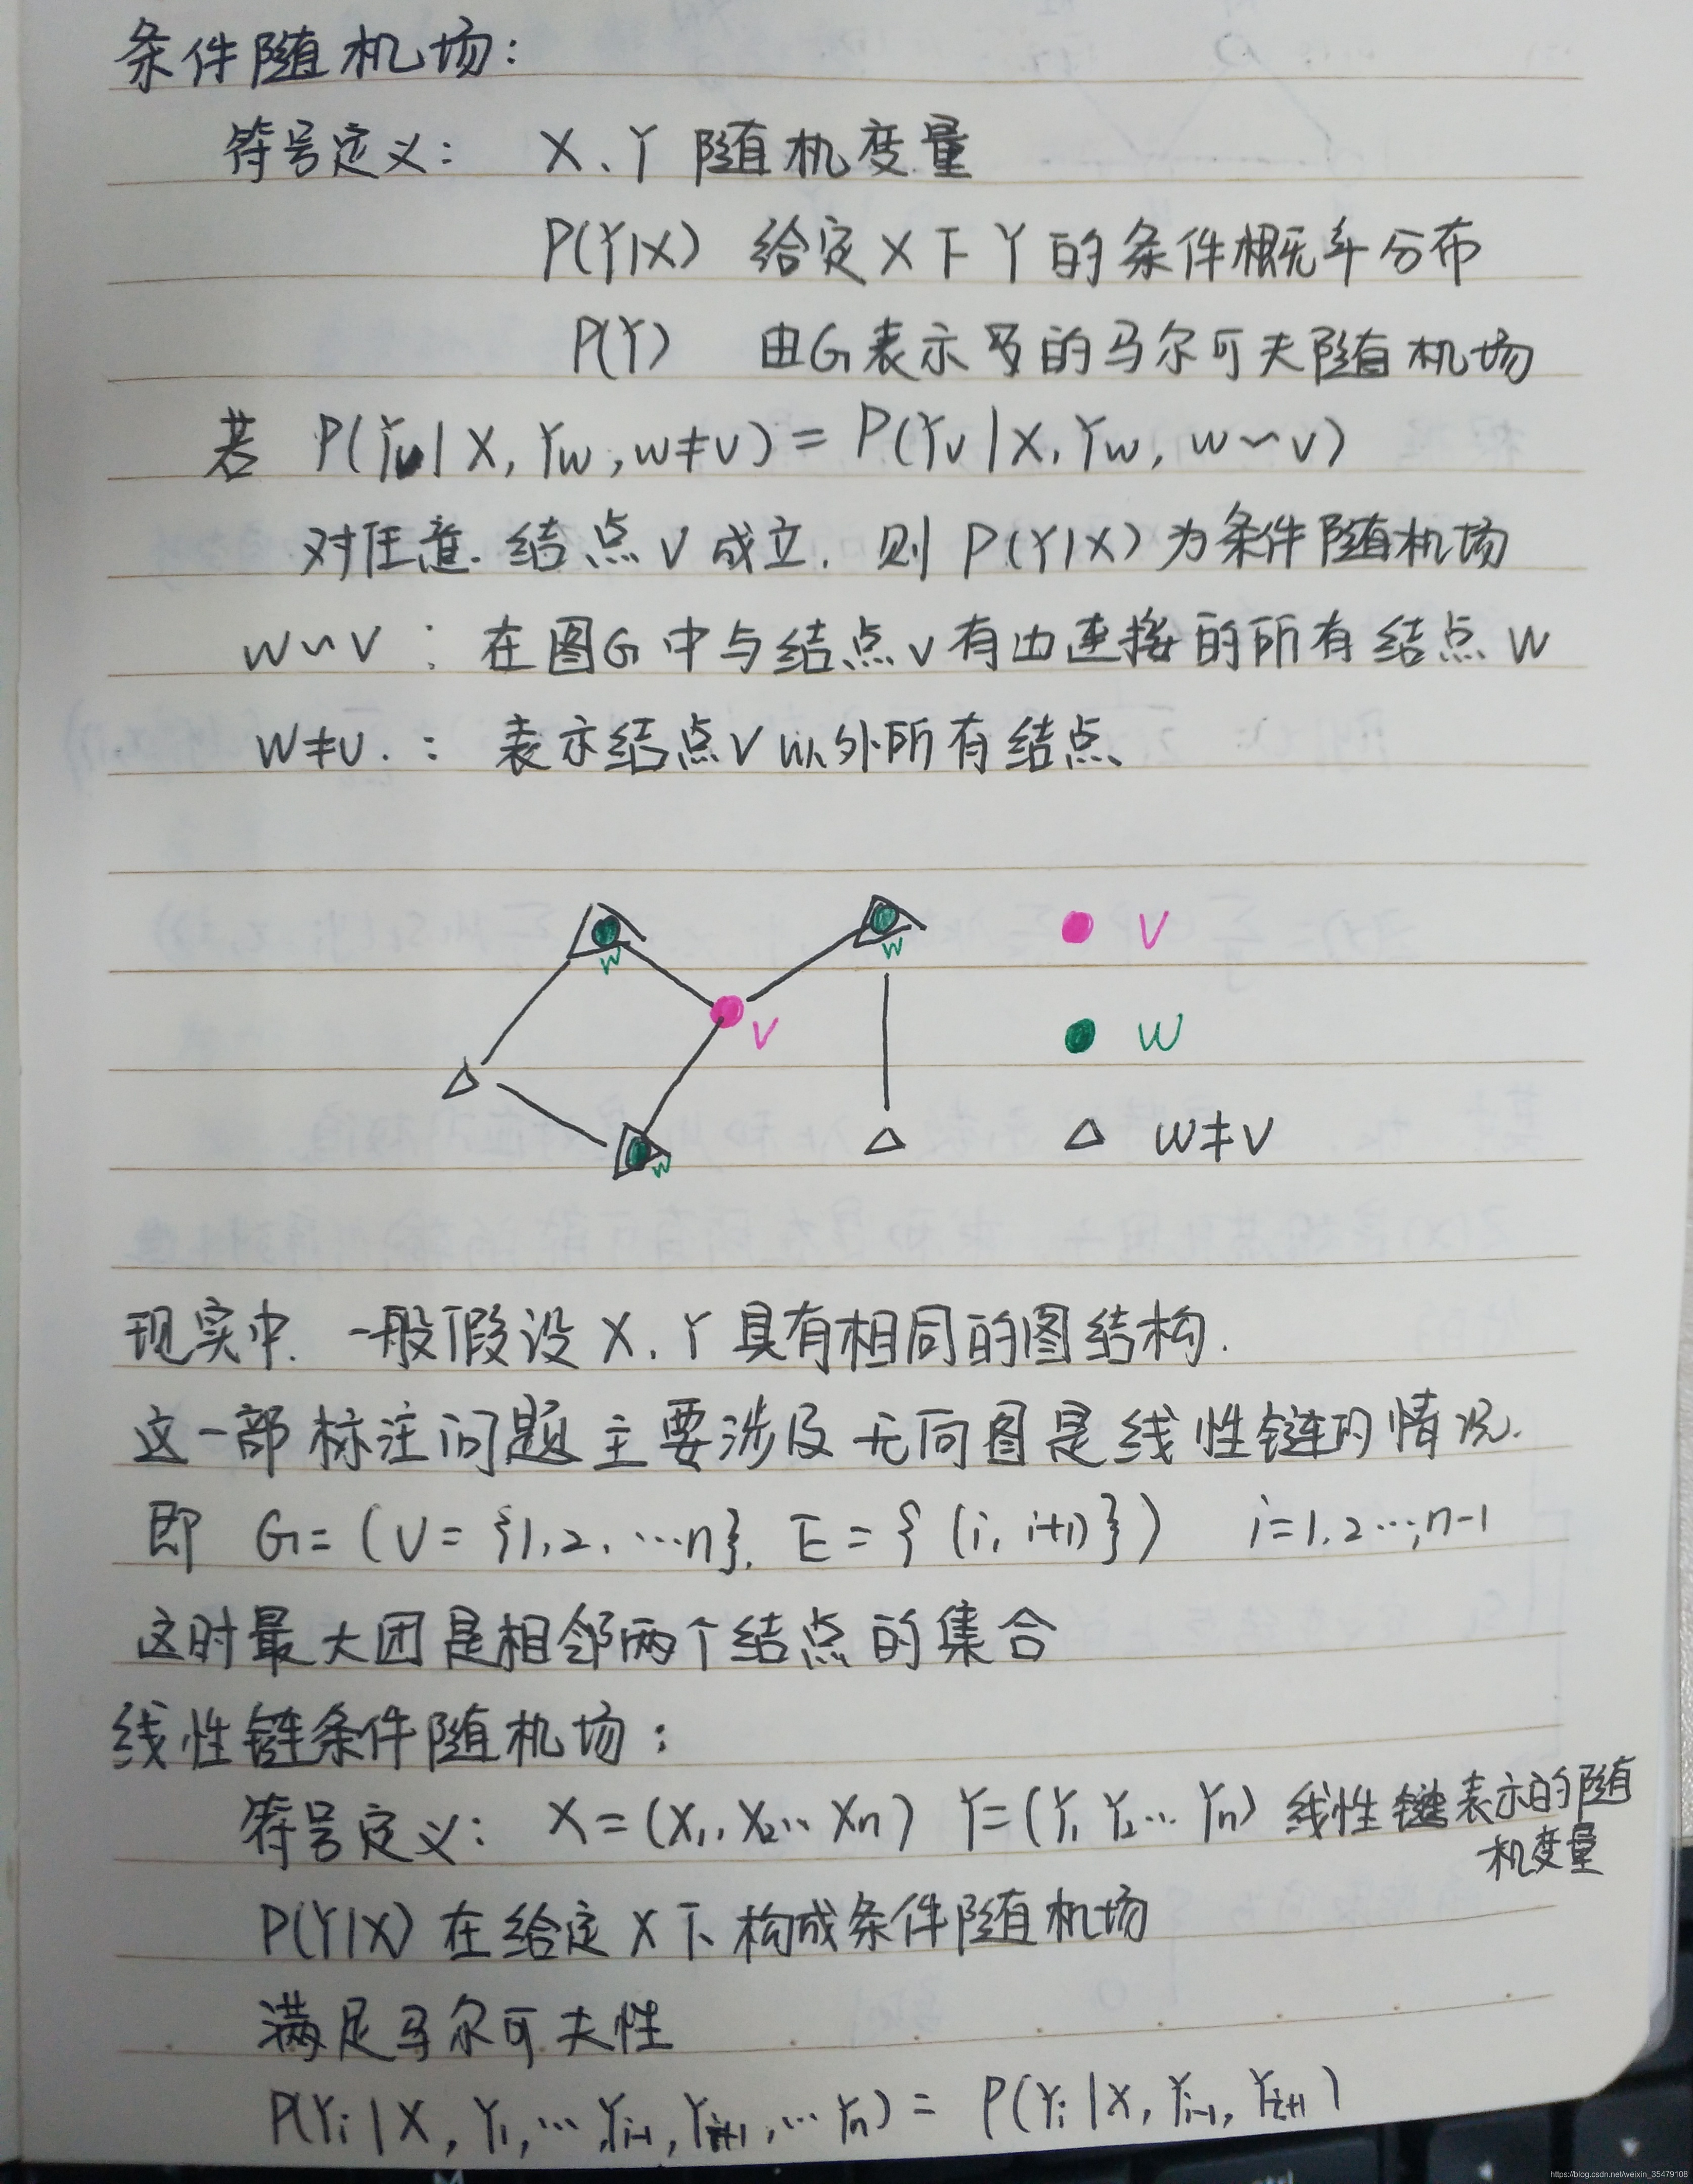 条件随机场:
符号定义: X、Y 随机变量
P(Y|X) 给定X下Y的条件概率分布
P(Y) 由G表示的马尔可夫随机场
若 P(Yv|X, Yw, w≠v) = P(Yv|X, Yw, w∽v)
对任意.结点v成立. 则 P(Y|X)为条件随机场
w∽v : 在图G中与结点v有边连接的所有结点W
W≠v. : 表示结点v以外所有结点
w
w
V
v
W
w
W≠V
现实中. 一般假设X、Y具有相同的图结构.
这一部标注问题主要涉及无向图是线性链的情况.
即 G=(V={1,2,…n}, E={(i, i+1)}) i=1,2…,n-1
这时最大团是相邻两个结点的集合
线性链条件随机场:
符号定义: X=(X1, X2… Xn) Y=(Y1 Y2… Yn) 线性键表示的随
机变量
P(Y|X) 在给定X下、构成条件随机场
满足马尔可夫性
P(Yi|X, Y1, …, Yi-1, Yi+1, … Yn) = P(Yi|X, Yi-1, Yi+1)
https://blog.csdn.net/weixin_35479108